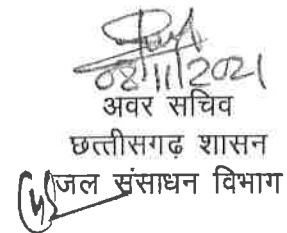 08/11/2021
अवर सचिव
छत्तीसगढ़ शासन
जल संसाधन विभाग